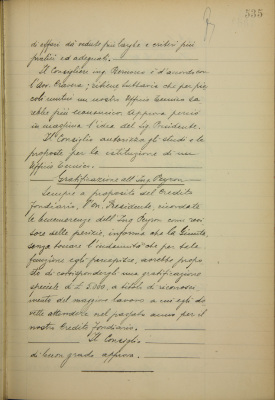 535
di affari da veduto più larghe e criteri più
pratici ed adeguati.
Il Consigliere ing. Romano è d'accordo con
l'avv. Pravia; ritiene tuttavia che per pic
coli centri un nostro Ufficio Tecnico sa
rebbe più economico. Approva perciò
in massima l'idea del Sig. Presidente.
Il Consiglio autorizza gli studi e le
proposte per la istituzione di un
Ufficio Tecnico.
Gratificazione all'Ing. Peyron
Sempre a proposito del Credito
Fondiario, l'On. Presidente, ricordate
le benemerenze dell'Ing. Peyron come revi
sore delle perizie, informa che la Giunta,
senza toccare l'indennità che per tale
funzione egli percepisce, avrebbe propo
sto di corrispondergli una gratificazione
speciale di £ 5.000, a titolo di riconosci
mento del maggior lavoro a cui egli do
vette attendere nel passato anno per il
nostro Credito Fondiario.
Il Consiglio
di buon grado approva.